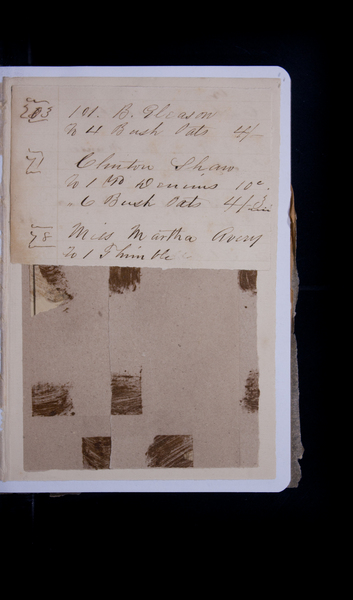 203 101. B. Gleason
To 4 Bush Oats 4/-
71 Clinton Shaw
To 1 Yd Denims 10c.
6 Bush Oats 4/-
78 Miss Martha Avery
To 1 Thimble